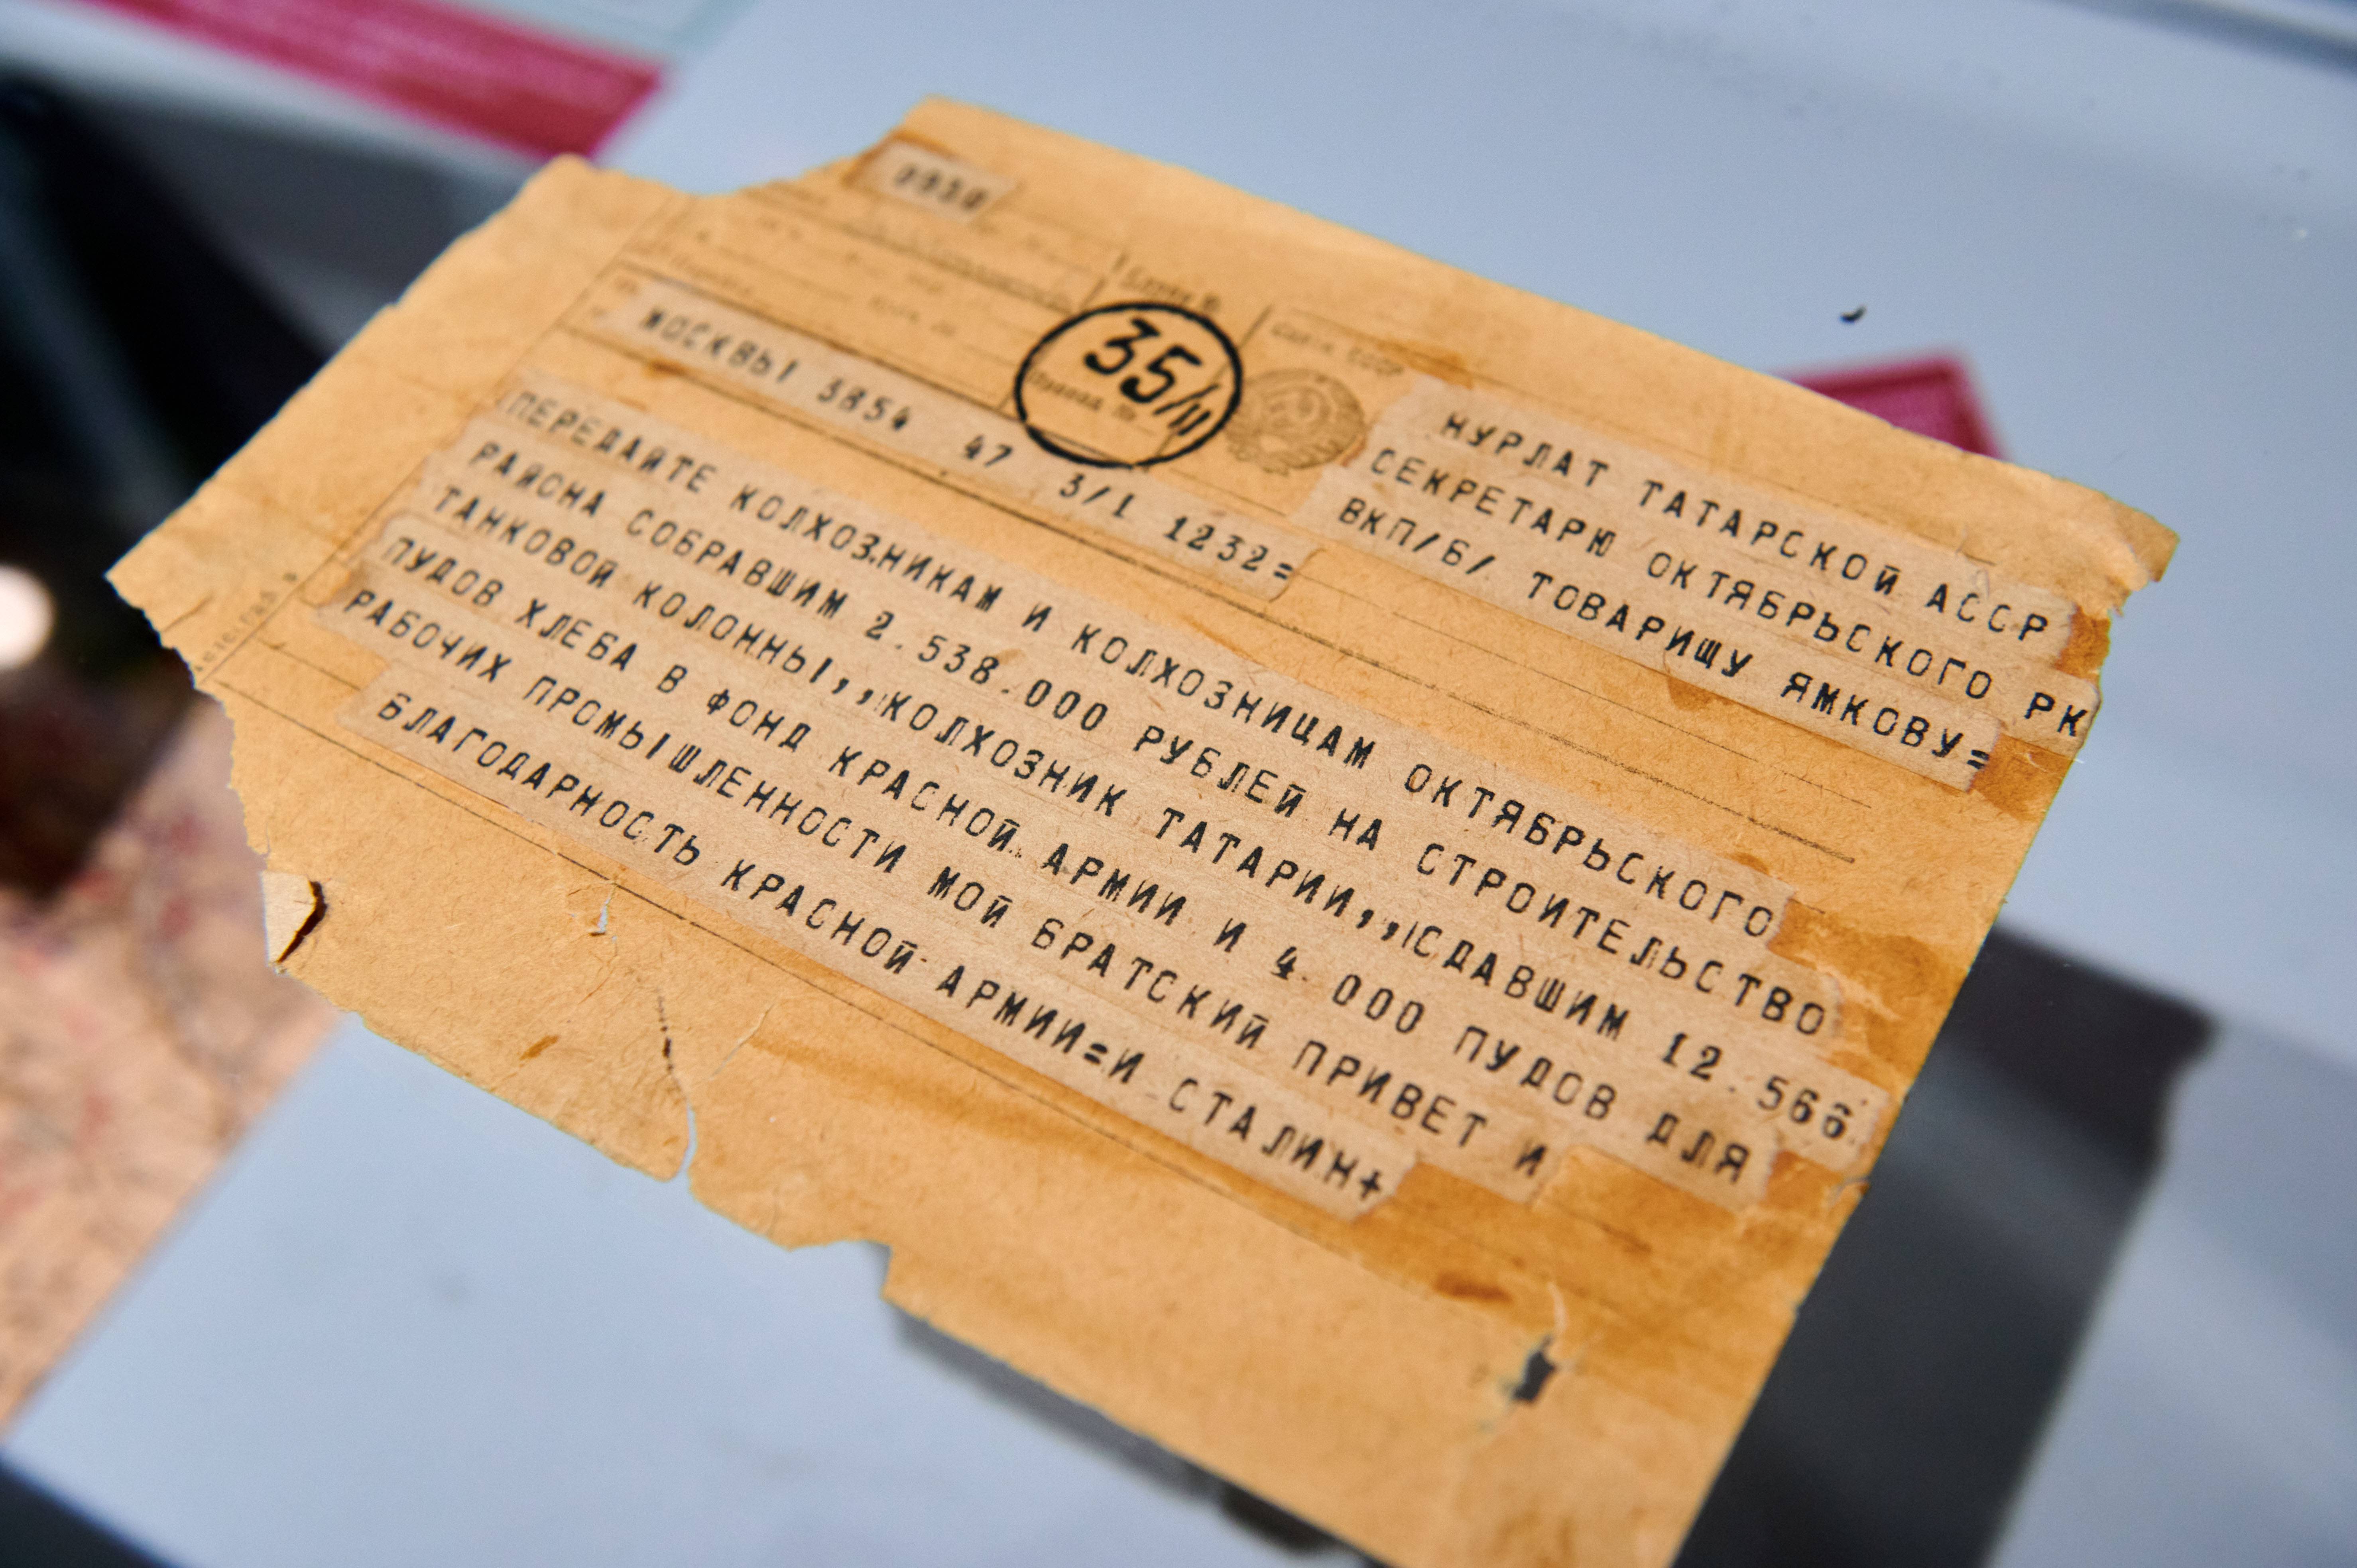 35/11
МОСКВЫ 3854 47 3/1 1232=
НУРЛАТ ТАТАРСКОЙ АССР
СЕКРЕТАРЮ ОКТЯБРЬСКОГО РК
ВКП/Б/ ТОВАРИЩУ ЯМКОВУ=
ПЕРЕДАЙТЕ КОЛХОЗНИКАМ И КОЛХОЗНИЦАМ ОКТЯБРЬСКОГО
РАЙОНА СОБРАВШИМ 2.538.000 РУБЛЕЙ НА СТРОИТЕЛЬСТВО
ТАНКОВОЙ КОЛОННЫ,,КОЛХОЗНИК ТАТАРИИ,,СДАВШИМ 12.566
ПУДОВ ХЛЕБА В ФОНД КРАСНОЙ АРМИИ И 4.000 ПУДОВ ДЛЯ
РАБОЧИХ ПРОМЫШЛЕННОСТИ МОЙ БРАТСКИЙ ПРИВЕТ И
БЛАГОДАРНОСТЬ КРАСНОЙ АРМИИ=И СТАЛИН+